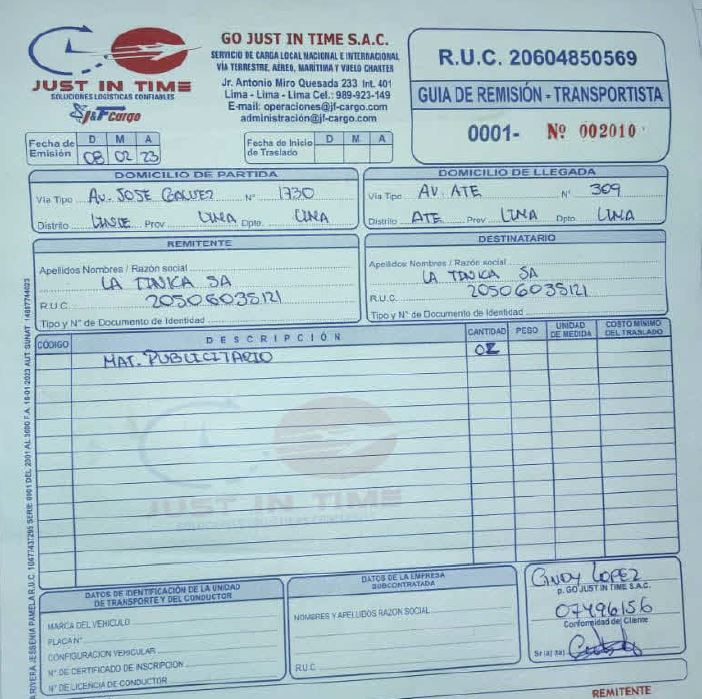 JUST IN TIME
SOLUCIONES LOGÍSTICAS CONFIABLES
J&F Cargo
GO JUST IN TIME S.A.C.
SERVICIO DE CARGA LOCAL NACIONAL E INTERNACIONAL
VÍA TERRESTRE, AEREO, MARÍTIMA Y VUELO CHARTER
Jr. Antonio Miro Quesada 233 Int. 401
Lima - Lima - Lima Cel.: 989-923-149
E-mail: operaciones@jf-cargo.com
administración@jf-cargo.com
R.U.C. 20604850569
GUIA DE REMISIÓN - TRANSPORTISTA
0001- Nº 002010
Fecha de Emisión D M A
08 02 23
Fecha de Inicio de Traslado D M A
DOMICILIO DE PARTIDA
Vía Tipo AV. JOSE GALVEZ N° 1730
Distrito LINCE Prov LIMA Dpto. LIMA
DOMICILIO DE LLEGADA
Vía Tipo AV. ATE N° 309
Distrito ATE Prov LIMA Dpto. LIMA
REMITENTE
Apellidos Nombres / Razón social
LA TINKA SA
R.U.C. 20506035121
Tipo y N° de Documento de Identidad
DESTINATARIO
Apellidos Nombres / Razón social
LA TINKA SA
R.U.C. 20506035121
Tipo y N° de Documento de Identidad
CÓDIGO DESCRIPCIÓN CANTIDAD PESO UNIDAD DE MEDIDA COSTO MÍNIMO DEL TRASLADO
MAT. PUBLICITARIO 02
JUST IN TIME
DATOS DE IDENTIFICACIÓN DE LA UNIDAD
DE TRANSPORTE Y DEL CONDUCTOR
MARCA DEL VEHICULO
PLACA N°
CONFIGURACION VEHICULAR
N° DE CERTIFICADO DE INSCRIPCION
N° DE LICENCIA DE CONDUCTOR
DATOS DE LA EMPRESA
SUBCONTRATADA
NOMBRES Y APELLIDOS RAZON SOCIAL
R.U.C.
CINDY LOPEZ
p. GO JUST IN TIME S.A.C.
07496156
Conformidad del Cliente
Sr(a) (ta)
REMITENTE